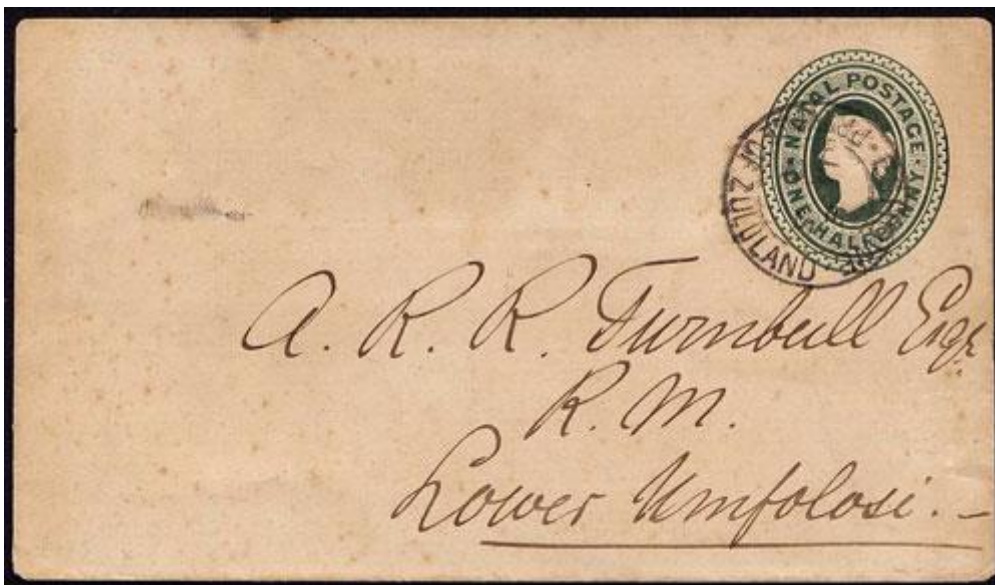 NATAL POSTAGE
ONE HALFPENNY
ZULULAND
A. R. R. Turnbull Esqr.
R. M.
Lower Umfolosi. –